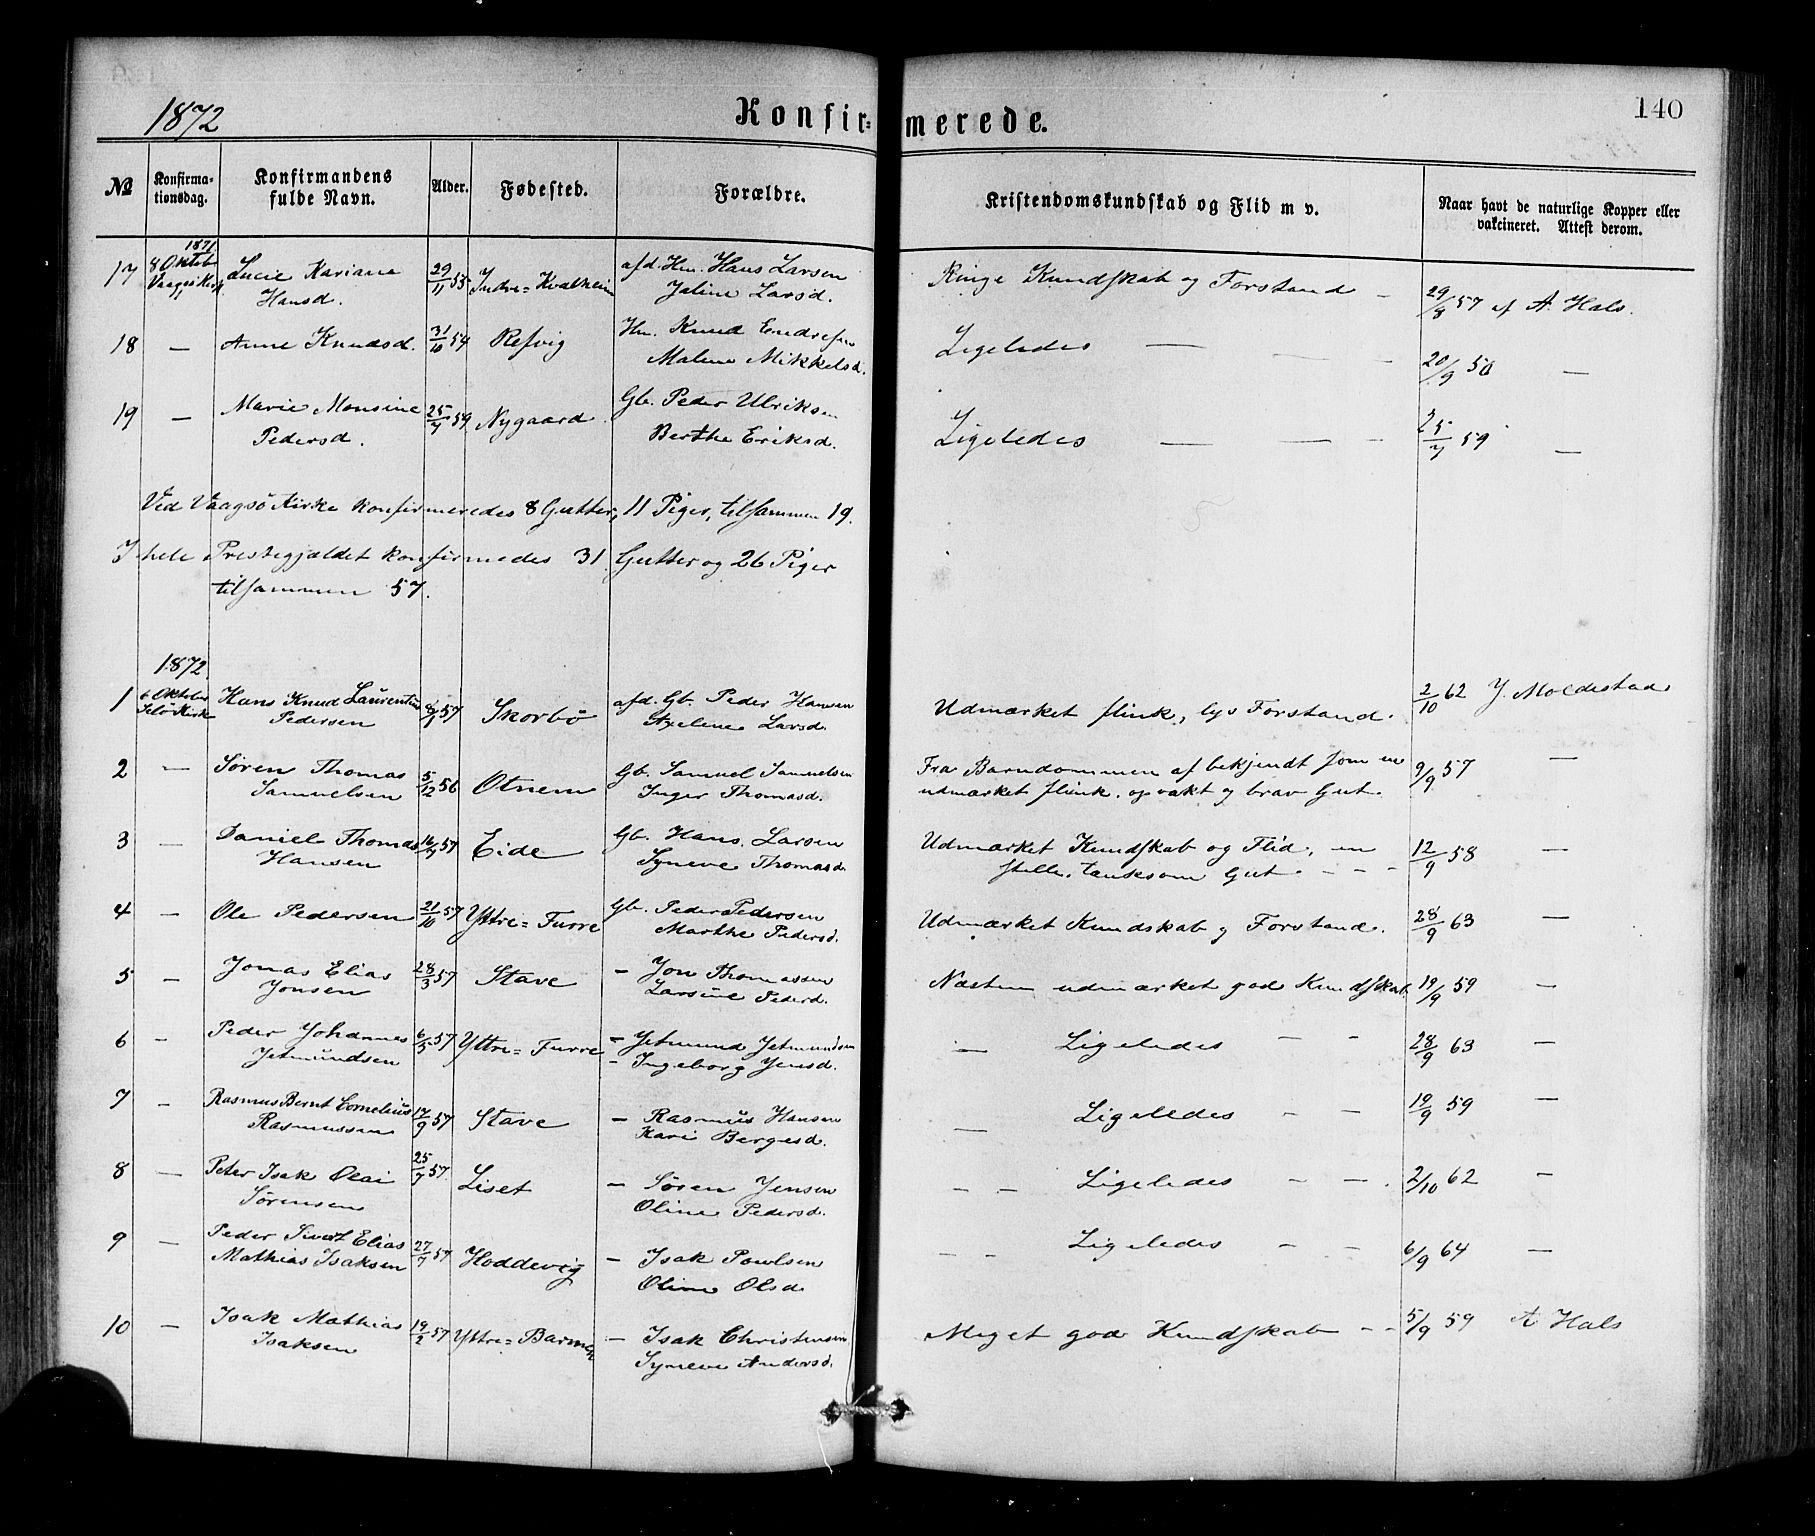 1872
Konfir=merede.
140
№
Konfirma-
tionsdag.
Konfirmandens
fulde Navn.
Alder.
Fødested.
Forældre.
Kristendomskundskab og Flid m v.
Naar havt de naturlige Kopper eller
vakcineret. Attest derom.
1871
17 8 Oktob Lucie Kariane 29/11 55 Indre=Kvalheim afd. Hm. Hans Larsen Ringe Kundskab og Forstand – 29/8 57 af A. Hals.
Vaagsø Kirk Hansd. Larsd.
18 — Anne Knudsd. 31/10 54 Refvig Hm. Knud Endresen Ligeledes — — – 20/9 50 —
Malene Mikkelsd.
19 — Marie Monsine Nygaard Gb. Peder Ulriksen Ligeledes — — – 59 —
Pedersd. Berthe Eriksd.
Ved Vaagsø Kirke konfirmeredes 8 Gutter, 11 Piger, tilsammen 19.
I hele Prestegjældet konfirmedes 31 Gutter og 26 Piger
tilsammen 57.
1872
1 6 Oktober Hans Knud Laurentius 57 Skorbø afd. Gb. Peder Hansen Udmærket flink, lys Forstand. 2/10 62 J. Moldestad
Selø Kirk Pedersen Axeline Larsd.
2 — Søren Thomas 5/12 56 Otnem Gb. Samuel Samuelsen Fra Barndommen af bekjendt som en 9/9 57 —
Samuelsen Inger Thomasd. udmærket flink, opvakt og brav Gut.
3 — Daniel Thomas 57 Eide Gb. Hans Larsen Udmærket Kundskab og Flid, en 12/9 58 —
Hansen Syneve Thomasd. stille, tænksom Gut. – – –
4 — Ole Pedersen 21/10 57 Yttre=Furre Gb. Peder Pedersen Udmærket Kundskab og Forstand. 28/9 63 —
Marthe Pedersd.
5 – Jonas Elias 28/3 57 Stave – Jon Thomassen Næsten udmærket god Kundskab 19/9 59 –
Jonsen Larsine Pederd.
6 – Peder Johannes 6/5 57 Yttre=Furre – Jetmund Jetmundsen — Ligeledes – – 28/9 63 —
Jetmundsen – Ingeborg Jensd.
7 – Rasmus Bernt Cornelius 17/9 57 Stave – Rasmus Hansen — Ligeledes – – 19/9 59 —
Rasmussen Kari Bergesd.
8 — Peter Isak Olai 25/7 57 Liset – Søren Jensen – – Ligeledes – – 2/10 62 –
Sørensen Oline Pedersd.
9 – Peder Sivert Elias 27/7 57 Hoddevig – Isak Powlsen – – Ligeledes – – 6/9 64 —
Mathias Isaksen Oline Olsd.
10 – Isak Mathias 19/2 57 Yttre=Barmen – Isak Christensen Meget god Kundskab – – 5/9 59 A Hals
Isaksen Syneve Andersd.